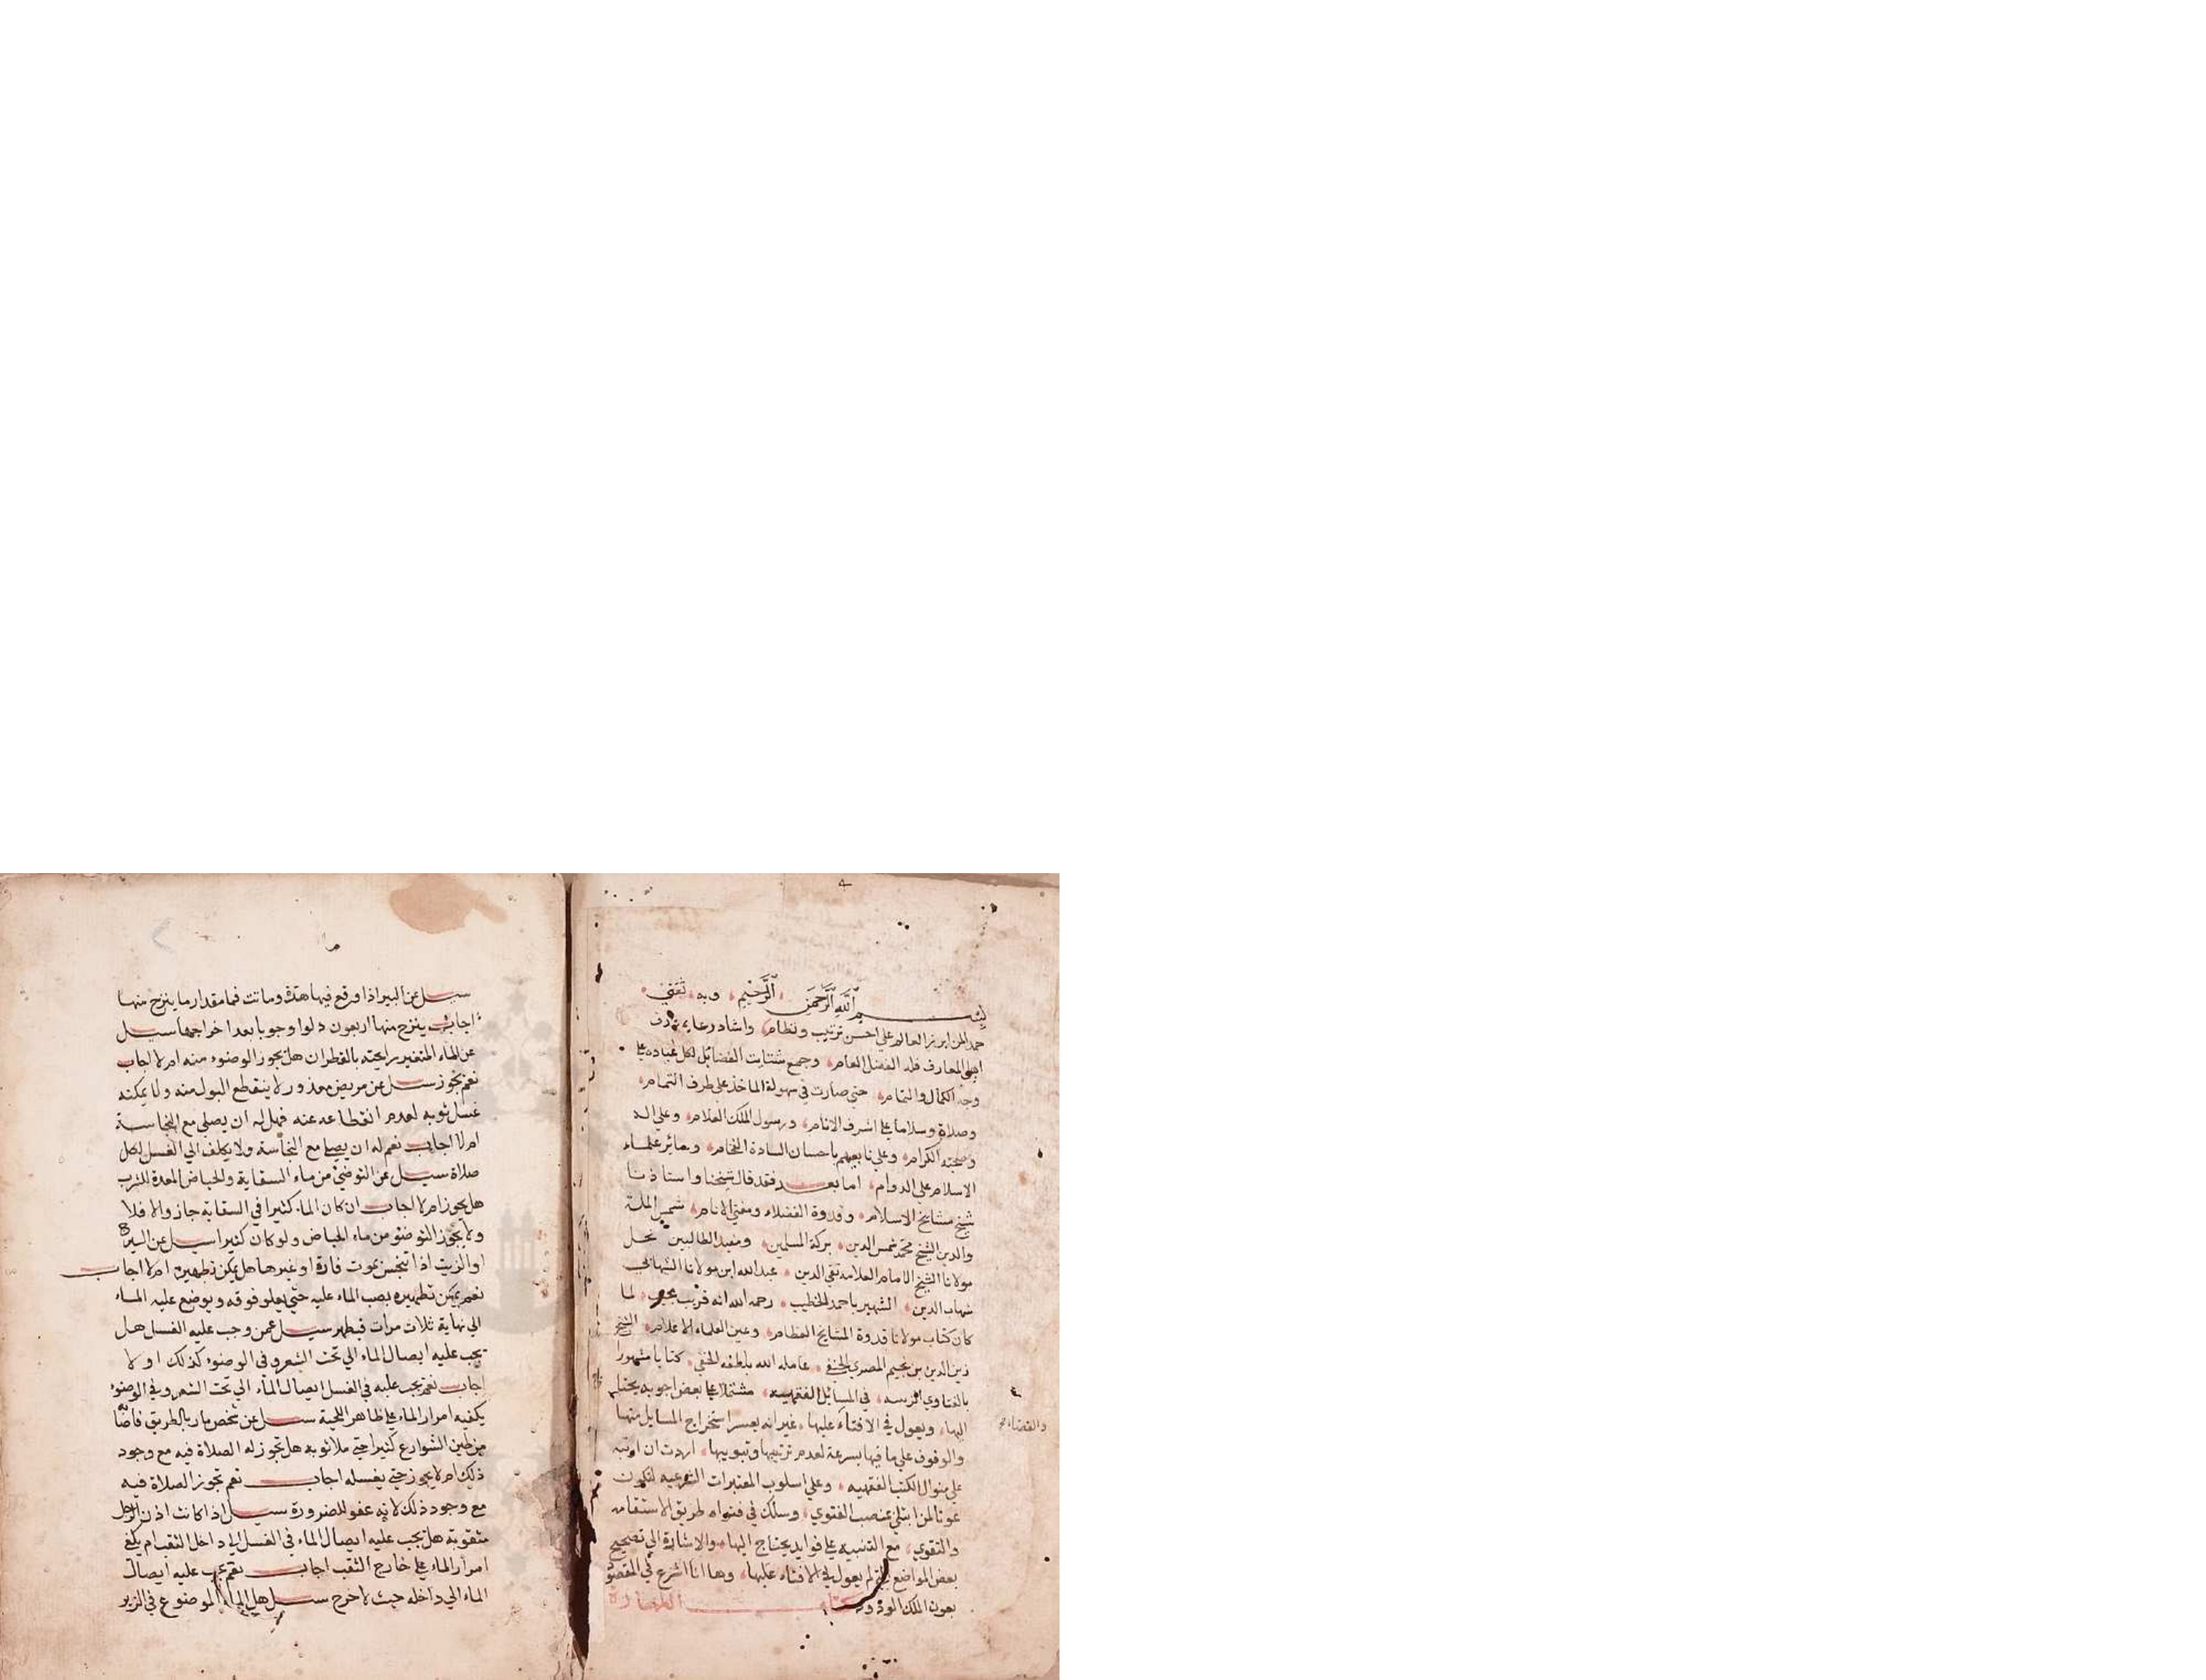 بسم الله الرحمن الرحيم وبه ثقتي
حمدا لمن ابرز العالم علي احسن ترتيب ونظام واشاد رعاية
المعارف فله الفضل العام وجمع شتايت الفضائل لكل عباده علي
وجه الكمال والتمام حتي صارت في سهولة الماخذ علي طرف التمام
وصلاة وسلاما علي اشرف الانام ورسول الملك العلام وعلي اله
وصحبه الكرام وعلي تابعيهم باحسان السادة الفخام وسائر علماء
الاسلام علي الدوام اما بعد فقد قال شيخنا واستاذنا
شيخ مشايخ الاسلام وقدوة الفضلاء ومفتي الانام شمس الملة
والدين الشيخ محمد شمس الدين بركة المسلمين ومفيد الطالبين نجل
مولانا الشيخ الامام العلامه تقي الدين عبد الله ابن مولانا
شهاب الدين الشهير باحمد الخطيب رحمه الله انه قريب مجيب لما
كان كتاب مولانا قدوة المشايخ العظام وعين العلماء الاعلام الشيخ
زين الدين بن نجيم المصري الحنفي عامله الله بلطفه الخفي كتابا مشهورا
بالفتاوي في المسائل الفقهيه مشتملا علي بعض اجوبه يحتاج
اليها ويعول في الافتاء عليها غير انه يعسر استخراج المسايل منها
والقضاء
والوقوف علي ما فيها بسرعة لعدم ترتيبها وتبويبها اردت ان ارتبه
علي منوال الكتب الفقهيه وعلي اسلوب المعتبرات الشرعيه لتكون
عونا لمن ابتلي بمنصب الفتوي وسلك في فتواه طريق الاستقامه
والتقوي مع التنبيه علي فوايد يحتاج اليها والاشارة الي تصحيح
بعض المواضع التي لم يعول في الافتاء عليها وها انا اشرع في المقصود
بعون الملك الودود كتاب الطهارة
سيل عن البير اذا وقع فيها هرة وماتت فما مقدار ما ينزح منها
اجاب ينزح منها اربعون دلوا وجوبا بعد اخراجها سيل
عن الماء المتغير رايحته بالقطران هل يجوز الوضوء منه ام لا اجاب
نعم يجوز سيل عن مريض معذور لا ينقطع البول منه ولا يمكنه
غسل ثوبه لعدم انقطاعه عنه فهل له ان يصلي مع النجاسة
ام لا اجاب نعم له ان يصلي مع النجاسة ولا يكلف الي الغسل لكل
صلاة سيل عن التوضئ من ماء السقاية والحياض المعدة للشرب
هل يجوز ام لا اجاب ان كان الماء كثيرا في السقايه جاز والا فلا
ولا يجوز التوضؤ من ماء الحياض ولو كان كثيرا سيل عن
او الزيت اذا تنجس بموت فارة او غيرها هل يمكن تطهيره ام لا اجاب
نعم يمكن تطهيره بصب الماء عليه حتي يعلو فوقه ويوضع عليه الماء
الي نهاية ثلاث مرات فيطهر سيل عمن وجب عليه الغسل هل
يجب عليه ايصال الماء الي تحت الشعر وفي الوضوء كذلك او لا
اجاب نعم يجب عليه في الغسل ايصال الماء الي تحت الشعر وفي الوضوء
يكفيه امرار الماء علي ظاهر اللحية سيل عن شخص مار بالطريق
من طين الشوارع كثيرا حتي ملا ثوبه هل تجوز له الصلاة فيه مع وجود
ذلك ام لا يجوز حتي يغسله اجاب نعم تجوز الصلاة فيه
مع وجود ذلك لانه عفو للضرورة سيل اذا كانت اذن الرجل
مثقوبة هل يجب عليه ايصال الماء في الغسل الي داخل الثقب ام يكفي
امرار الماء علي خارج الثقب اجاب نعم يجب عليه ايصال
الماء الي داخله حيث لا حرج سيل هل الماء الموضوع في الزير